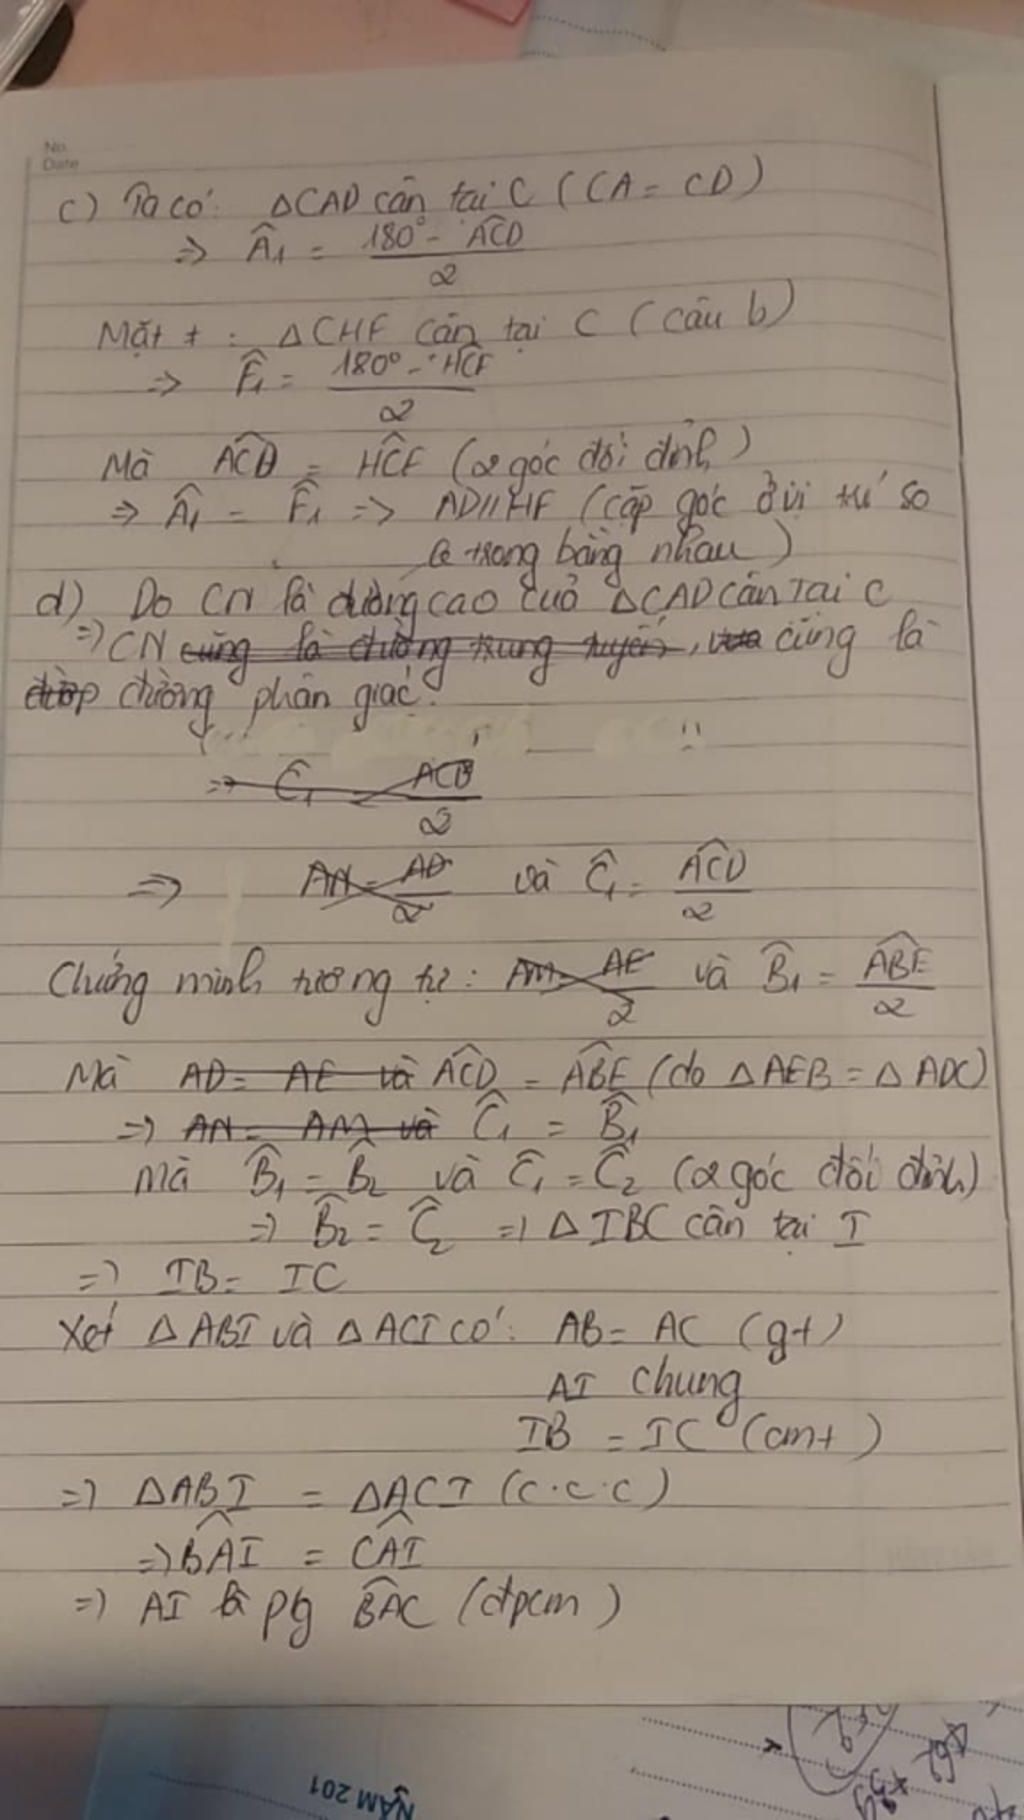 No.
Date
c) Ta có: ΔCAD cân tại C (CA = CD)
⇒ Â₁ = (180° - ACD̂)/2
Mặt ≠ : ΔCHF cân tại C (câu b)
⇒ F̂₁ = (180° - HCF̂)/2
Mà ACD̂ = HCF̂ (2 góc đối đỉnh)
⇒ Â₁ = F̂₁ => AD//HF (cặp góc ở vị trí so
le trong bằng nhau)
d) Do CN là đường cao của ΔCAD cân tại C
=> CN cũng là đường trung tuyến, vừa cũng là
đường phân giác.
=> Ĉ₁ = ACD̂/2
=> AN = AD/2 và Ĉ₁ = ACD̂/2
Chứng minh tương tự: AM = AE/2 và B̂₁ = ABÊ/2
Mà AD = AE và ACD̂ = ABÊ (do ΔAEB = ΔADC)
=> AN = AM và Ĉ₁ = B̂₁
mà B̂₁ = B̂₂ và Ĉ₁ = Ĉ₂ (2 góc đối đỉnh)
=> B̂₂ = Ĉ₂ => ΔIBC cân tại I
=> IB = IC
Xét ΔABI và ΔACI có: AB = AC (gt)
AI chung
IB = IC (cmt)
=> ΔABI = ΔACI (c.c.c)
=> BAÎ = CAÎ
=> AI là pg BAĈ (đpcm)
NĂM 201